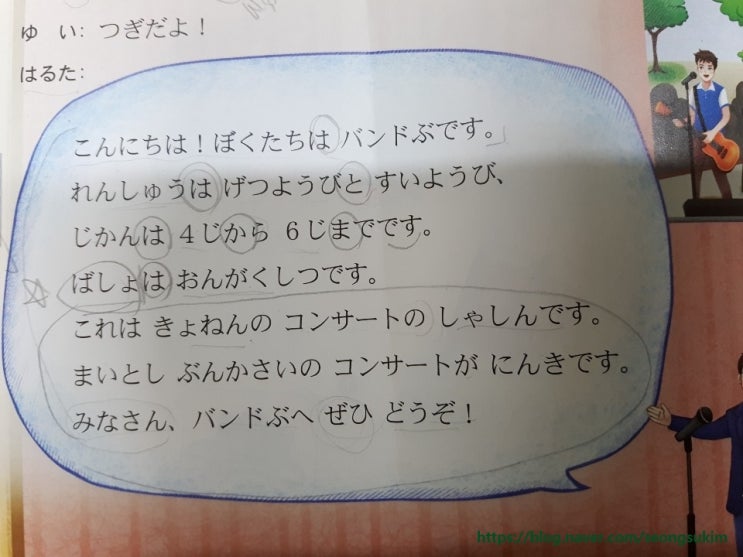 ゆ い: つぎだよ！
はるた:
こんにちは！ぼくたちは バンドぶです。
れんしゅうは げつようびと すいようび、
じかんは 4じから 6じまでです。
ばしょは おんがくしつです。
これは きょねんの コンサートの しゃしんです。
まいとし ぶんかさいの コンサートが にんきです。
みなさん、バンドぶへ ぜひ どうぞ！
https://blog.naver.com/seongsukim